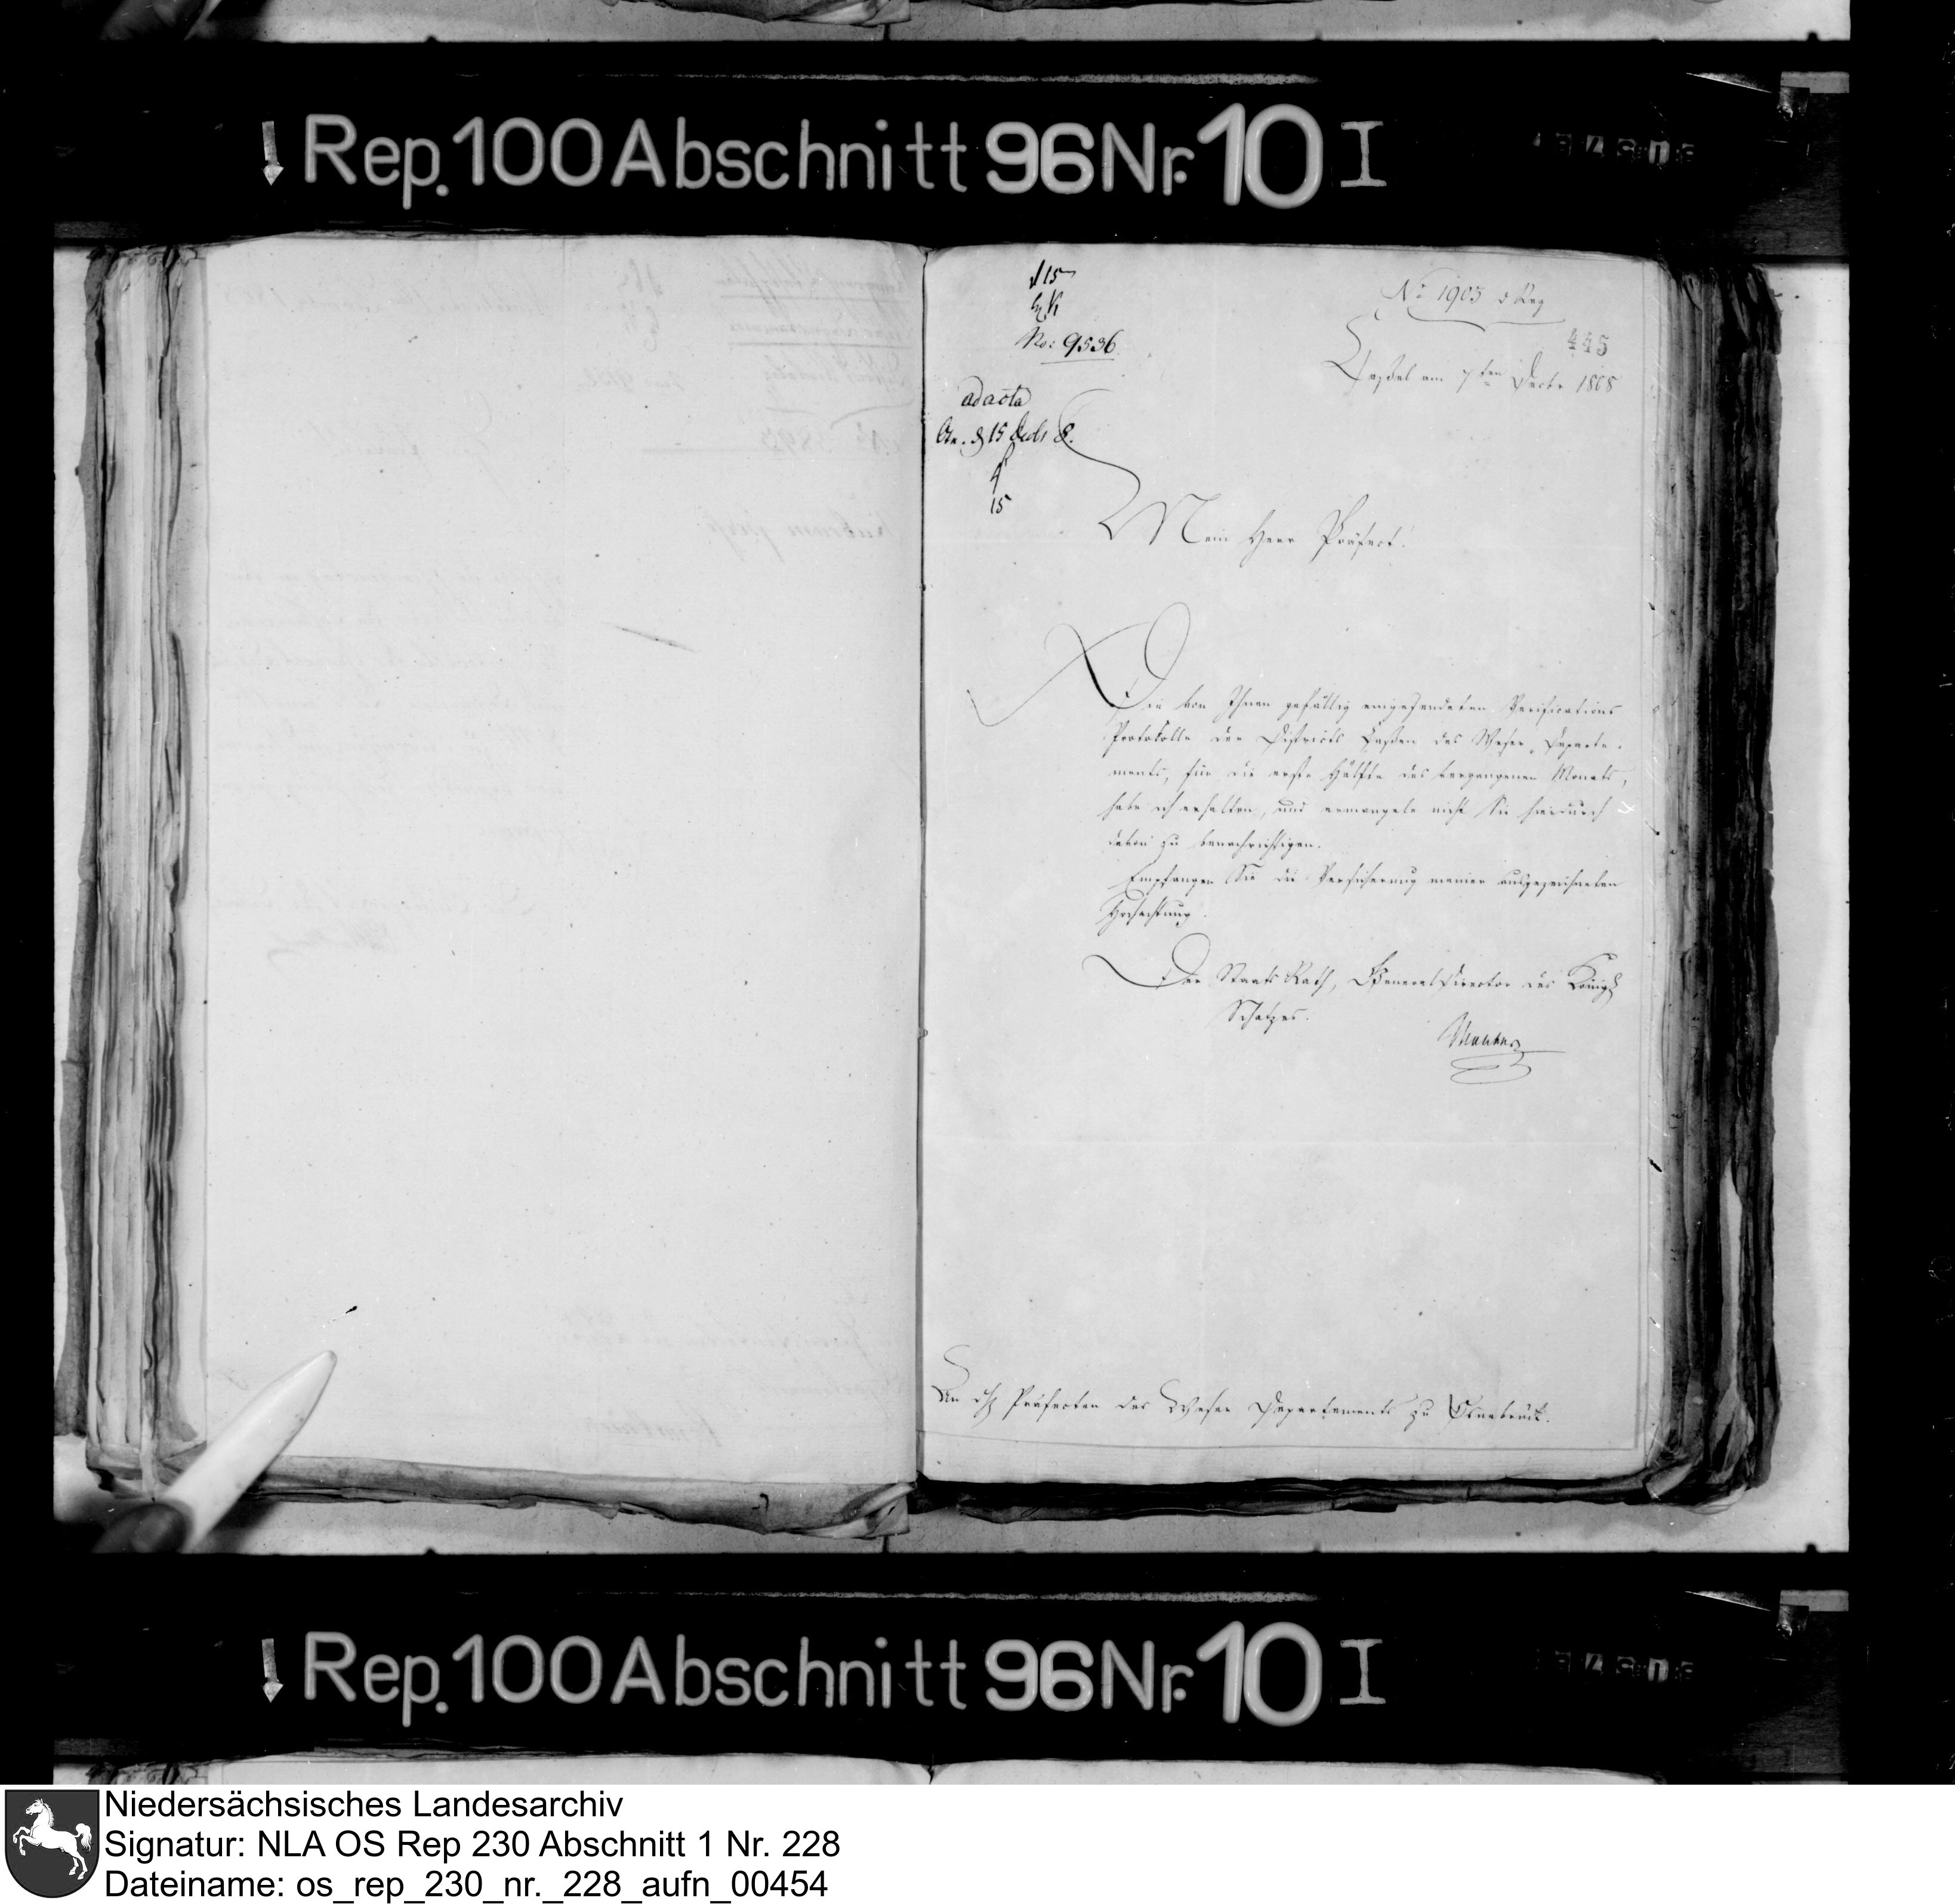 Rep. 100 Abschnitt 96 Nr. 10 I
15
No: 9536
ad acta
15
15
No 1905
445
Cassel am 7ten Decbr 1808
Mein Herr Präfect!
Die von Ihnen gefällig eingesendeten Verifications
Protokolle der Districts Cassen des Weser Departe-
ments, für die erste Hälfte des vergangenen Monats,
habe ich erhalten, und ermangele nicht Sie hierdurch
davon zu benachrichtigen.
Empfangen Sie die Versicherung meiner ausgezeichneten
Hochachtung.
Der Staats Rath, General Director des Königl
Schatzes.
An den Präfecten des Weser Departements zu Osnabrück.
Rep. 100 Abschnitt 96 Nr. 10 I
Niedersächsisches Landesarchiv
Signatur: NLA OS Rep 230 Abschnitt 1 Nr. 228
Dateiname: os_rep_230_nr._228_aufn_00454